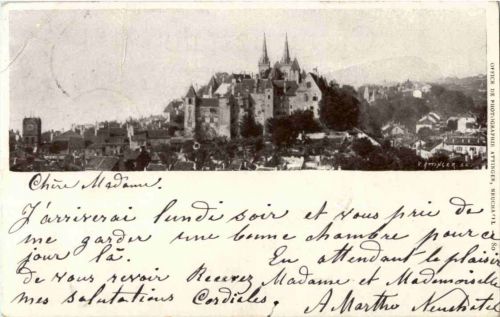 OFFICE DE PHOTOGRAPHIE ATTINGER, NEUCHATEL
V. ATTINGER
Chère Madame.
J'arriverai lundi soir et vous prie de
me garder une bonne chambre pour ce
jour là. En attendant le plaisir
de vous revoir Recevez Madame et Mademoiselle
mes salutations Cordiales. A Marthe Neuchatel